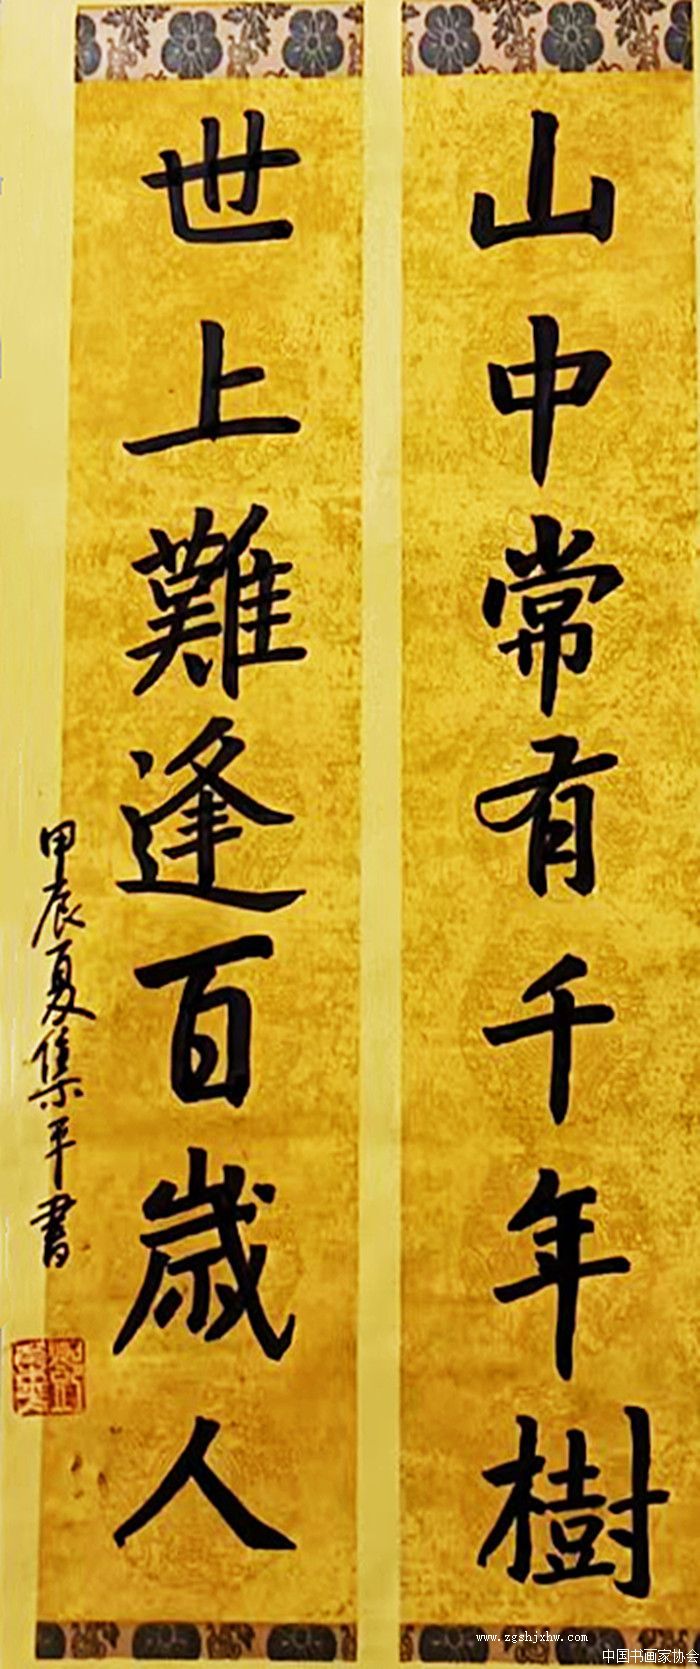 山中常有千年樹
世上難逢百歲人
甲辰夏集平書
www.zgshjxhw.com
中国书画家协会